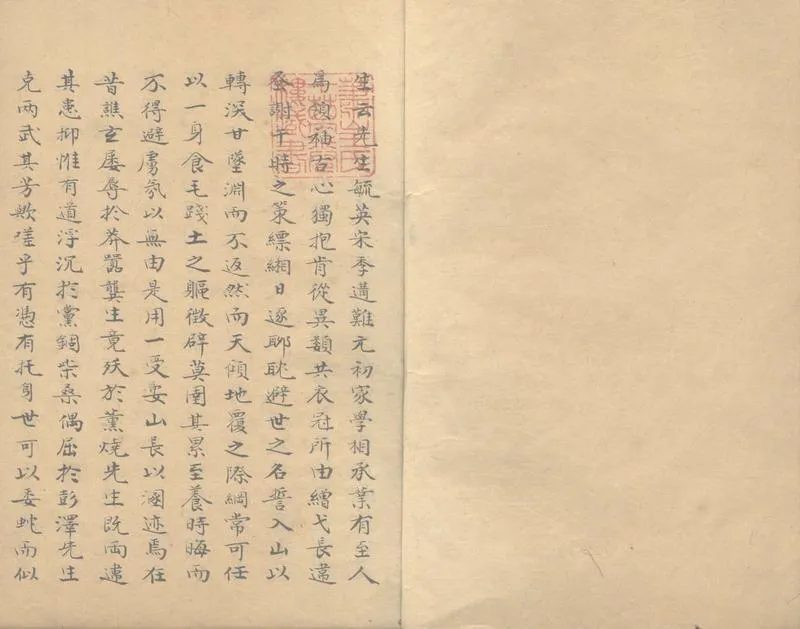 生云先生毓英宋季遘難元初家學相承業有至人
爲領袖古心獨抱肯從異類共衣冠所由繒弋長違
蚤謝干時之策縹緗日逐耶耽避世之名誓入山以
轉深甘墜淵而不返然而天傾地覆之際綱常可任
以一身食毛踐土之軀徵辟莫圉其累至養時晦而
不得避虜氛以無由是用一受婺山長以溷迹焉在
昔譙玄屡辱於莽嚚龔生竟殀於薰燒先生既両逮
其患抑惟有道浮沉於黨錮柴桑偶屈於彭澤先生
克兩武其芳歟嗟乎有憑有托身世可以委蛇而似